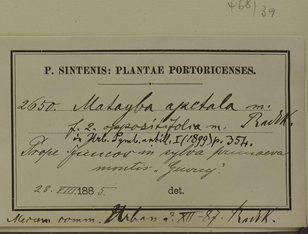 468/39
P. SINTENIS: PLANTAE PORTORICENSES.
2650. Matayba apetala m. Radlk.
f. 2. oppositifolia m.
in Urb. Symb. antill. I (1899) p. 354.
Prope in sylva primaeva
montis
28. VIII. 1885. det.
comm. Urban d. XII-87. Radlk.